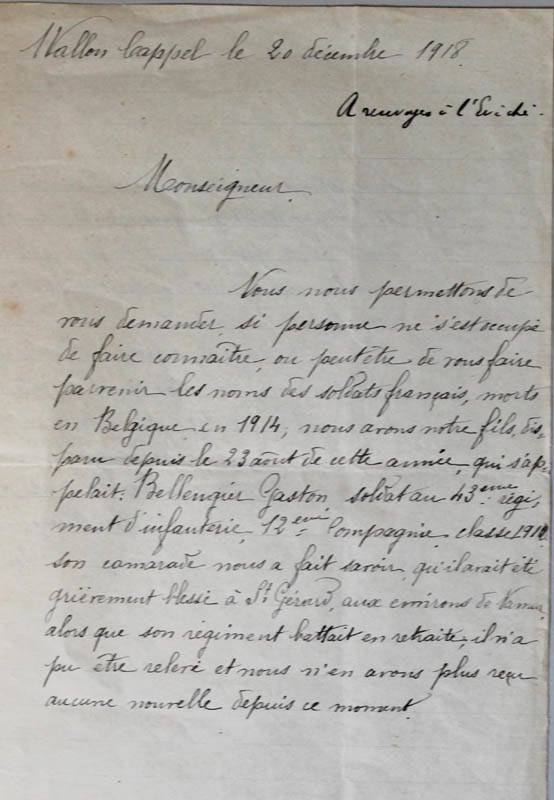 Wallon Cappel le 20 décembre 1918.
A renvoyer à l'Evêché.
Monseigneur
Nous nous permettons de
vous demander, si personne ne s'est occupé
de faire connaître, ou peut être de vous faire
parvenir les noms des soldats français, morts
en Belgique en 1914; nous avons notre fils, dis-
paru depuis le 23 août de cette année, qui s'ap-
pelait: Bellengier Gaston soldat au 43eme régi-
ment d'infanterie, 12eme Compagnie, classe
son camarade nous a fait savoir, qu'il avait été
grièrement blessé à St Gérard, aux environs de Namur,
alors que son régiment battait en retraite, il n'a
pu être relevé et nous n'en avons plus reçu
aucune nouvelle depuis ce moment.